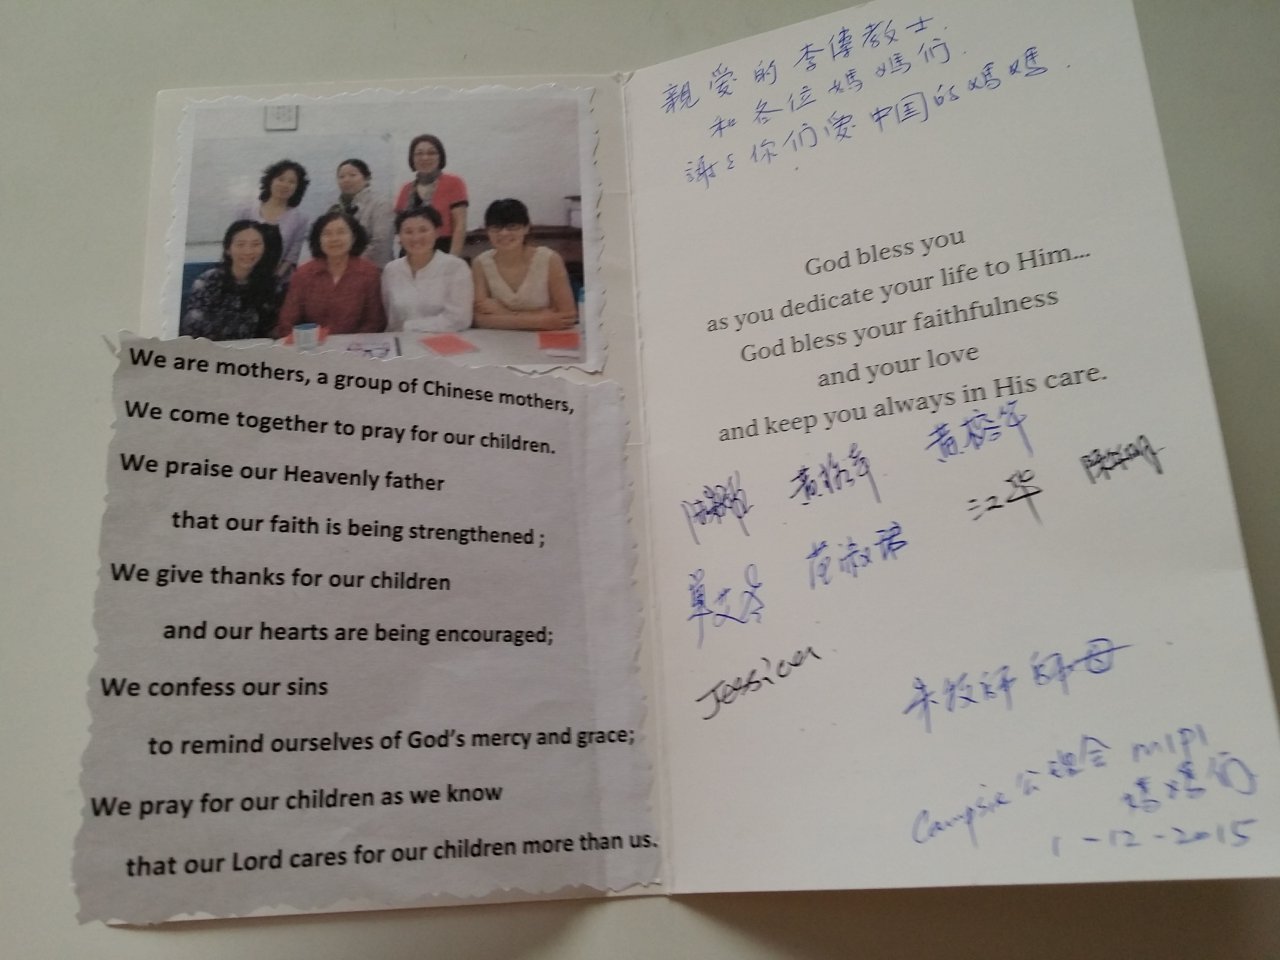 We are mothers, a group of Chinese mothers,
We come together to pray for our children.
We praise our Heavenly father
that our faith is being strengthened ;
We give thanks for our children
and our hearts are being encouraged;
We confess our sins
to remind ourselves of God's mercy and grace;
We pray for our children as we know
that our Lord cares for our children more than us.
親愛的李傳教士
和各位媽媽们.
謝謝你们愛中国的媽媽.
God bless you
as you dedicate your life to Him...
God bless your faithfulness
and your love
and keep you always in His care.
江华
范淑君
Jessica
师母
Campsie 公理会 MIPI
媽媽们
1-12-2015